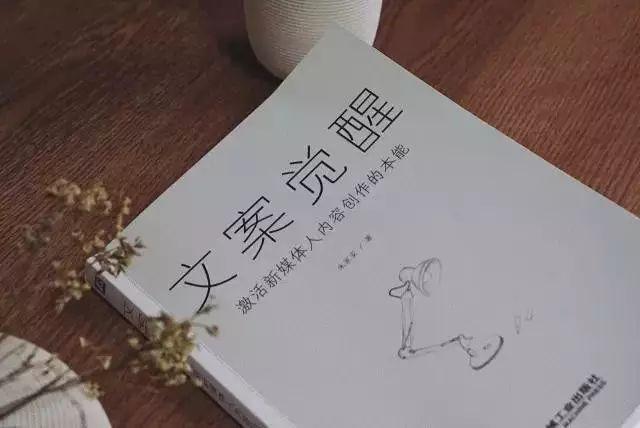 文案觉醒
激活新媒体人内容创作的本能
械工业出版社